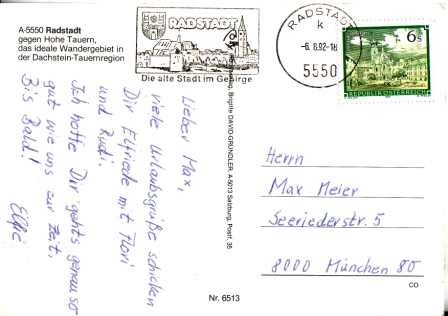 A-5550 Radstadt
gegen Hohe Tauern,
das ideale Wandergebiet in
der Dachstein-Tauernregion
RADSTADT
Die alte Stadt im Gebirge
RADSTADT
k
-6. 8.92-18
5550
6 S
REPUBLIK ÖSTERREICH
Lieber Max,
viele Urlaubsgrüße schicken
Dir Elfriede mit Flori
und Rudi.
Ich hoffe Dir gehts genauso
gut wie uns zur Zeit.
Bis Bald!
Elfie
Brigitte DAVID-GRÜNDLER, A-5013 Salzburg, Postf. 35
Herrn
Max Meier
Seeriederstr. 5
8000 München 80
CO
Nr. 6513